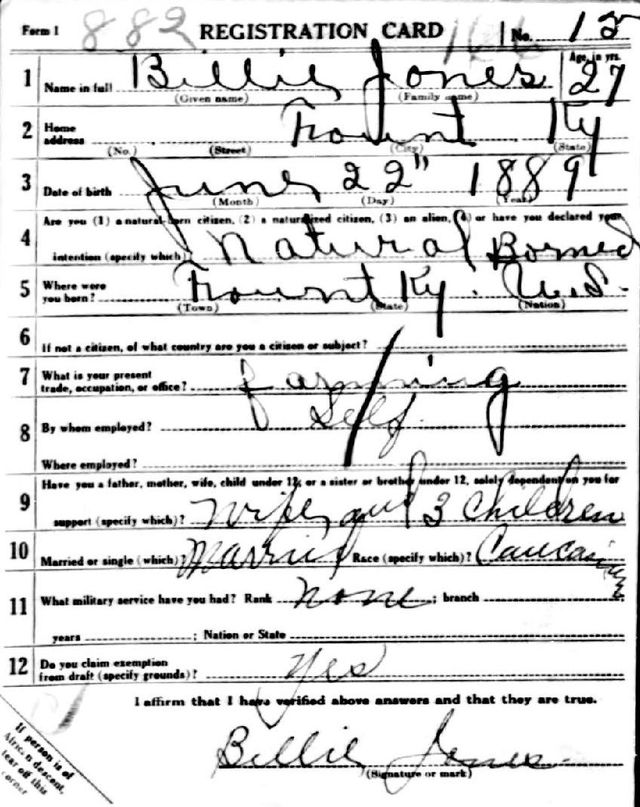 Form 1 882 REGISTRATION CARD No. 12
1 Name in full Billie Jones Age, in yrs. 27
(Given name) (Family name)
2 Home address Fount Ky
(No.) (Street) (City) (State)
3 Date of birth June 22" 1889
(Month) (Day) (Year)
4 Are you (1) a natural-born citizen, (2) a naturalized citizen, (3) an alien, (4) or have you declared your
intention (specify which)? Natural Borned
5 Where were you born? Fount Ky. U.S.
(Town) (State) (Nation)
6 If not a citizen, of what country are you a citizen or subject?
7 What is your present trade, occupation, or office? farming
8 By whom employed? Self
Where employed?
9 Have you a father, mother, wife, child under 12, or a sister or brother under 12, solely dependent on you for
support (specify which)? Wife and 3 Children
10 Married or single (which)? Married Race (specify which)? Caucasian
11 What military service have you had? Rank none ; branch
years ; Nation or State
12 Do you claim exemption from draft (specify grounds)? Yes
I affirm that I have verified above answers and that they are true.
Billie Jones
(Signature or mark)
If person is of
African descent,
tear off this
corner